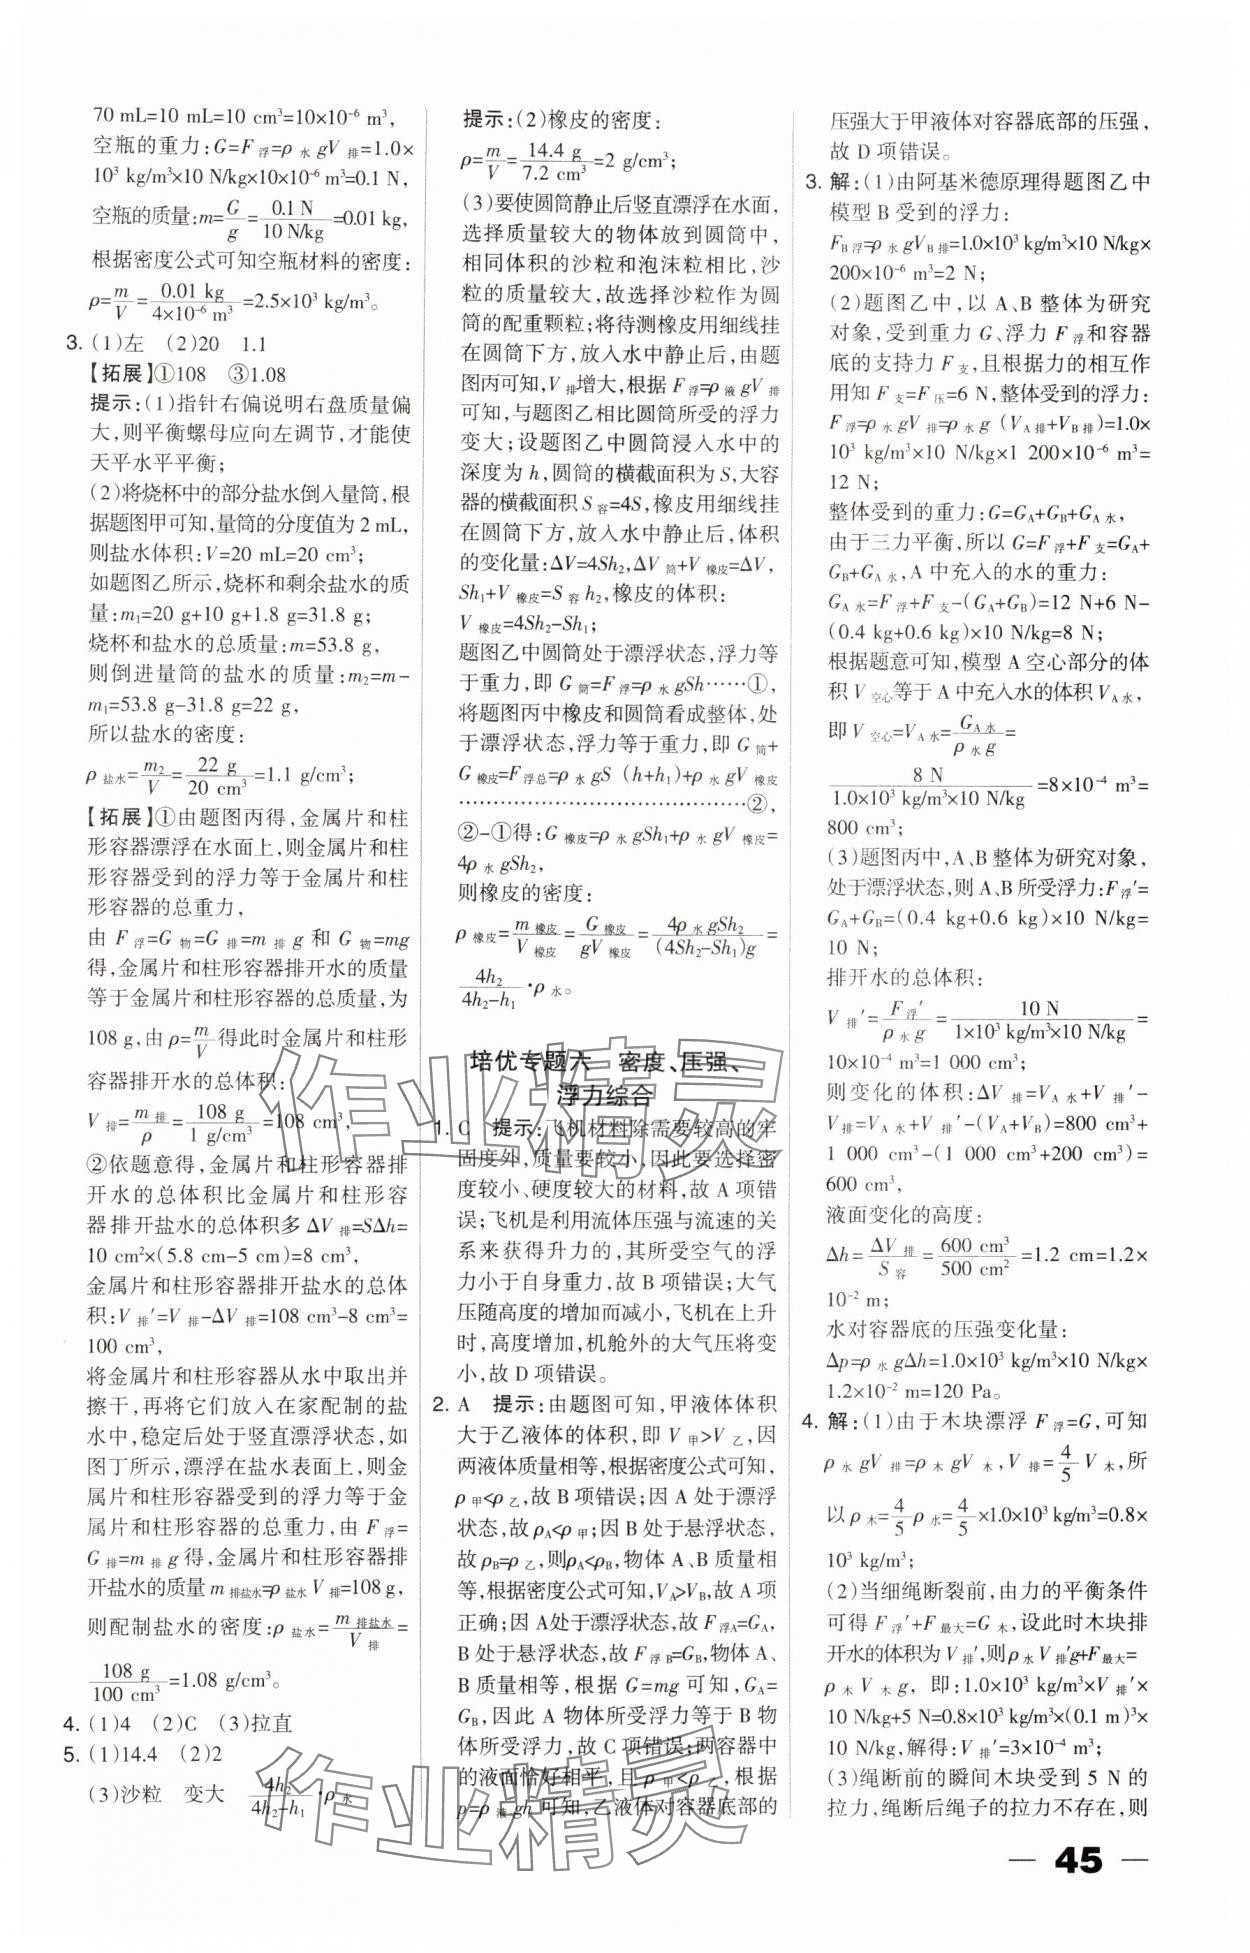 70 mL=10 mL=10 cm³=10×10⁻⁶ m³,
空瓶的重力:G=F浮=ρ水gV排=1.0×
10³ kg/m³×10 N/kg×10×10⁻⁶ m³=0.1 N,
空瓶的质量:m=G/g=0.1 N/10 N/kg=0.01 kg,
根据密度公式可知空瓶材料的密度:
ρ=m/V=0.01 kg/4×10⁻⁶ m³=2.5×10³ kg/m³。
3. (1)左 (2)20 1.1
【拓展】①108 ③1.08
提示:(1)指针右偏说明右盘质量偏
大,则平衡螺母应向左调节,才能使
天平水平平衡;
(2)将烧杯中的部分盐水倒入量筒,根
据题图甲可知,量筒的分度值为 2 mL,
则盐水体积:V=20 mL=20 cm³;
如题图乙所示,烧杯和剩余盐水的质
量:m₁=20 g+10 g+1.8 g=31.8 g;
烧杯和盐水的总质量:m=53.8 g,
则倒进量筒的盐水的质量:m₂=m-
m₁=53.8 g-31.8 g=22 g,
所以盐水的密度:
ρ盐水=m₂/V=22 g/20 cm³=1.1 g/cm³;
【拓展】①由题图丙得,金属片和柱
形容器漂浮在水面上,则金属片和柱
形容器受到的浮力等于金属片和柱
形容器的总重力,
由 F浮=G物=G排=m排g 和 G物=mg
得,金属片和柱形容器排开水的质量
等于金属片和柱形容器的总质量,为
108 g,由 ρ=m/V 得此时金属片和柱形
容器排开水的总体积:
V排=m排/ρ=108 g/1 g/cm³=108 cm³,
②依题意得,金属片和柱形容器排
开水的总体积比金属片和柱形容
器排开盐水的总体积多 ΔV排=SΔh=
10 cm²×(5.8 cm-5 cm)=8 cm³,
金属片和柱形容器排开盐水的总体
积:V排′=V排-ΔV排=108 cm³-8 cm³=
100 cm³,
将金属片和柱形容器从水中取出并
擦干,再将它们放入在家配制的盐
水中,稳定后处于竖直漂浮状态,如
图丁所示,漂浮在盐水表面上,则金
属片和柱形容器受到的浮力等于金
属片和柱形容器的总重力,由 F浮=
G排=m排g 得,金属片和柱形容器排
开盐水的质量 m排盐水=ρ盐水V排=108 g,
则配制盐水的密度:ρ盐水=m排盐水/V排=
108 g/100 cm³=1.08 g/cm³。
4. (1)4 (2)C (3)拉直
5. (1)14.4 (2)2
(3)沙粒 变大 4h₂/4h₂-h₁·ρ水
提示:(2)橡皮的密度:
ρ=m/V=14.4 g/7.2 cm³=2 g/cm³;
(3)要使圆筒静止后竖直漂浮在水面,
选择质量较大的物体放到圆筒中,
相同体积的沙粒和泡沫粒相比,沙
粒的质量较大,故选择沙粒作为圆
筒的配重颗粒;将待测橡皮用细线挂
在圆筒下方,放入水中静止后,由题
图丙可知,V排增大,根据 F浮=ρ液gV排
可知,与题图乙相比圆筒所受的浮力
变大;设题图乙中圆筒浸入水中的
深度为 h,圆筒的横截面积为 S,大容
器的横截面积 S容=4S,橡皮用细线挂
在圆筒下方,放入水中静止后,体积
的变化量:ΔV=4Sh₂,ΔV筒+V橡皮=ΔV,
Sh₁+V橡皮=S容h₂,橡皮的体积:
V橡皮=4Sh₂-Sh₁;
题图乙中圆筒处于漂浮状态,浮力等
于重力,即 G筒=F浮=ρ水gSh……①,
将题图丙中橡皮和圆筒看成整体,处
于漂浮状态,浮力等于重力,即 G筒+
G橡皮=F浮总=ρ水gS(h+h₁)+ρ水gV橡皮
……………………………………②,
②-①得:G橡皮=ρ水gSh₁+ρ水gV橡皮=
4ρ水gSh₂,
则橡皮的密度:
ρ橡皮=m橡皮/V橡皮=G橡皮/gV橡皮=4ρ水gSh₂/(4Sh₂-Sh₁)g=
4h₂/4h₂-h₁·ρ水。
培优专题六 密度、压强、
浮力综合
1. C 提示:飞机材料除需要较高的牢
固度外,质量要较小,因此要选择密
度较小、硬度较大的材料,故 A 项错
误;飞机是利用流体压强与流速的关
系来获得升力的,其所受空气的浮
力小于自身重力,故 B 项错误;大气
压随高度的增加而减小,飞机在上升
时,高度增加,机舱外的大气压将变
小,故 D 项错误。
2. A 提示:由题图可知,甲液体体积
大于乙液体的体积,即 V甲>V乙,因
两液体质量相等,根据密度公式可知,
ρ甲<ρ乙,故 B 项错误;因 A 处于漂浮
状态,故 ρA<ρ甲;因 B 处于悬浮状态,
故 ρB=ρ乙,则ρA<ρB,物体 A、B 质量相
等,根据密度公式可知,VA>VB,故 A 项
正确;因 A处于漂浮状态,故 F浮A=GA,
B 处于悬浮状态,故 F浮B=GB,物体 A、
B 质量相等,根据 G=mg 可知,GA=
GB,因此 A 物体所受浮力等于 B 物
体所受浮力,故 C 项错误;两容器中
的液面恰好相平,且 ρ甲<ρ乙,根据
p=ρ液gh 可知,乙液体对容器底部的
压强大于甲液体对容器底部的压强,
故 D 项错误。
3. 解:(1)由阿基米德原理得题图乙中
模型 B 受到的浮力:
FB浮=ρ水gVB排=1.0×10³ kg/m³×10 N/kg×
200×10⁻⁶ m³=2 N;
(2)题图乙中,以 A、B 整体为研究
对象,受到重力 G、浮力 F浮和容器
底的支持力 F支,且根据力的相互作
用知 F支=F压=6 N,整体受到的浮力:
F浮=ρ水gV排=ρ水g(VA排+VB排)=1.0×
10³ kg/m³×10 N/kg×1 200×10⁻⁶ m³=
12 N;
整体受到的重力:G=GA+GB+GA水,
由于三力平衡,所以 G=F浮+F支=GA+
GB+GA水,A 中充入的水的重力:
GA水=F浮+F支-(GA+GB)=12 N+6 N-
(0.4 kg+0.6 kg)×10 N/kg=8 N;
根据题意可知,模型 A 空心部分的体
积 V空心等于 A 中充入水的体积 VA水,
即 V空心=VA水=GA水/ρ水g=
8 N/1.0×10³ kg/m³×10 N/kg=8×10⁻⁴ m³=
800 cm³;
(3)题图丙中,A、B 整体为研究对象,
处于漂浮状态,则 A、B 所受浮力:F浮′=
GA+GB=(0.4 kg+0.6 kg)×10 N/kg=
10 N;
排开水的总体积:
V排′=F浮′/ρ水g=10 N/1×10³ kg/m³×10 N/kg=
10×10⁻⁴ m³=1 000 cm³;
则变化的体积:ΔV排=VA水+V排′-
V排=VA水+V排′-(VA+VB)=800 cm³+
1 000 cm³-(1 000 cm³+200 cm³)=
600 cm³,
液面变化的高度:
Δh=ΔV排/S容=600 cm³/500 cm²=1.2 cm=1.2×
10⁻² m;
水对容器底的压强变化量:
Δp=ρ水gΔh=1.0×10³ kg/m³×10 N/kg×
1.2×10⁻² m=120 Pa。
4. 解:(1)由于木块漂浮 F浮=G,可知
ρ水gV排=ρ木gV木,V排=4/5V木,所
以 ρ木=4/5ρ水=4/5×1.0×10³ kg/m³=0.8×
10³ kg/m³;
(2)当细绳断裂前,由力的平衡条件
可得 F浮′+F最大=G木,设此时木块排
开水的体积为 V排′,则ρ水V排′g+F最大=
ρ木V木g,即:1.0×10³ kg/m³×V排′×
10 N/kg+5 N=0.8×10³ kg/m³×(0.1 m)³×
10 N/kg,解得:V排′=3×10⁻⁴ m³;
(3)绳断前的瞬间木块受到 5 N 的
拉力,绳断后绳子的拉力不存在,则
— 45 —
作业精灵
作业精灵